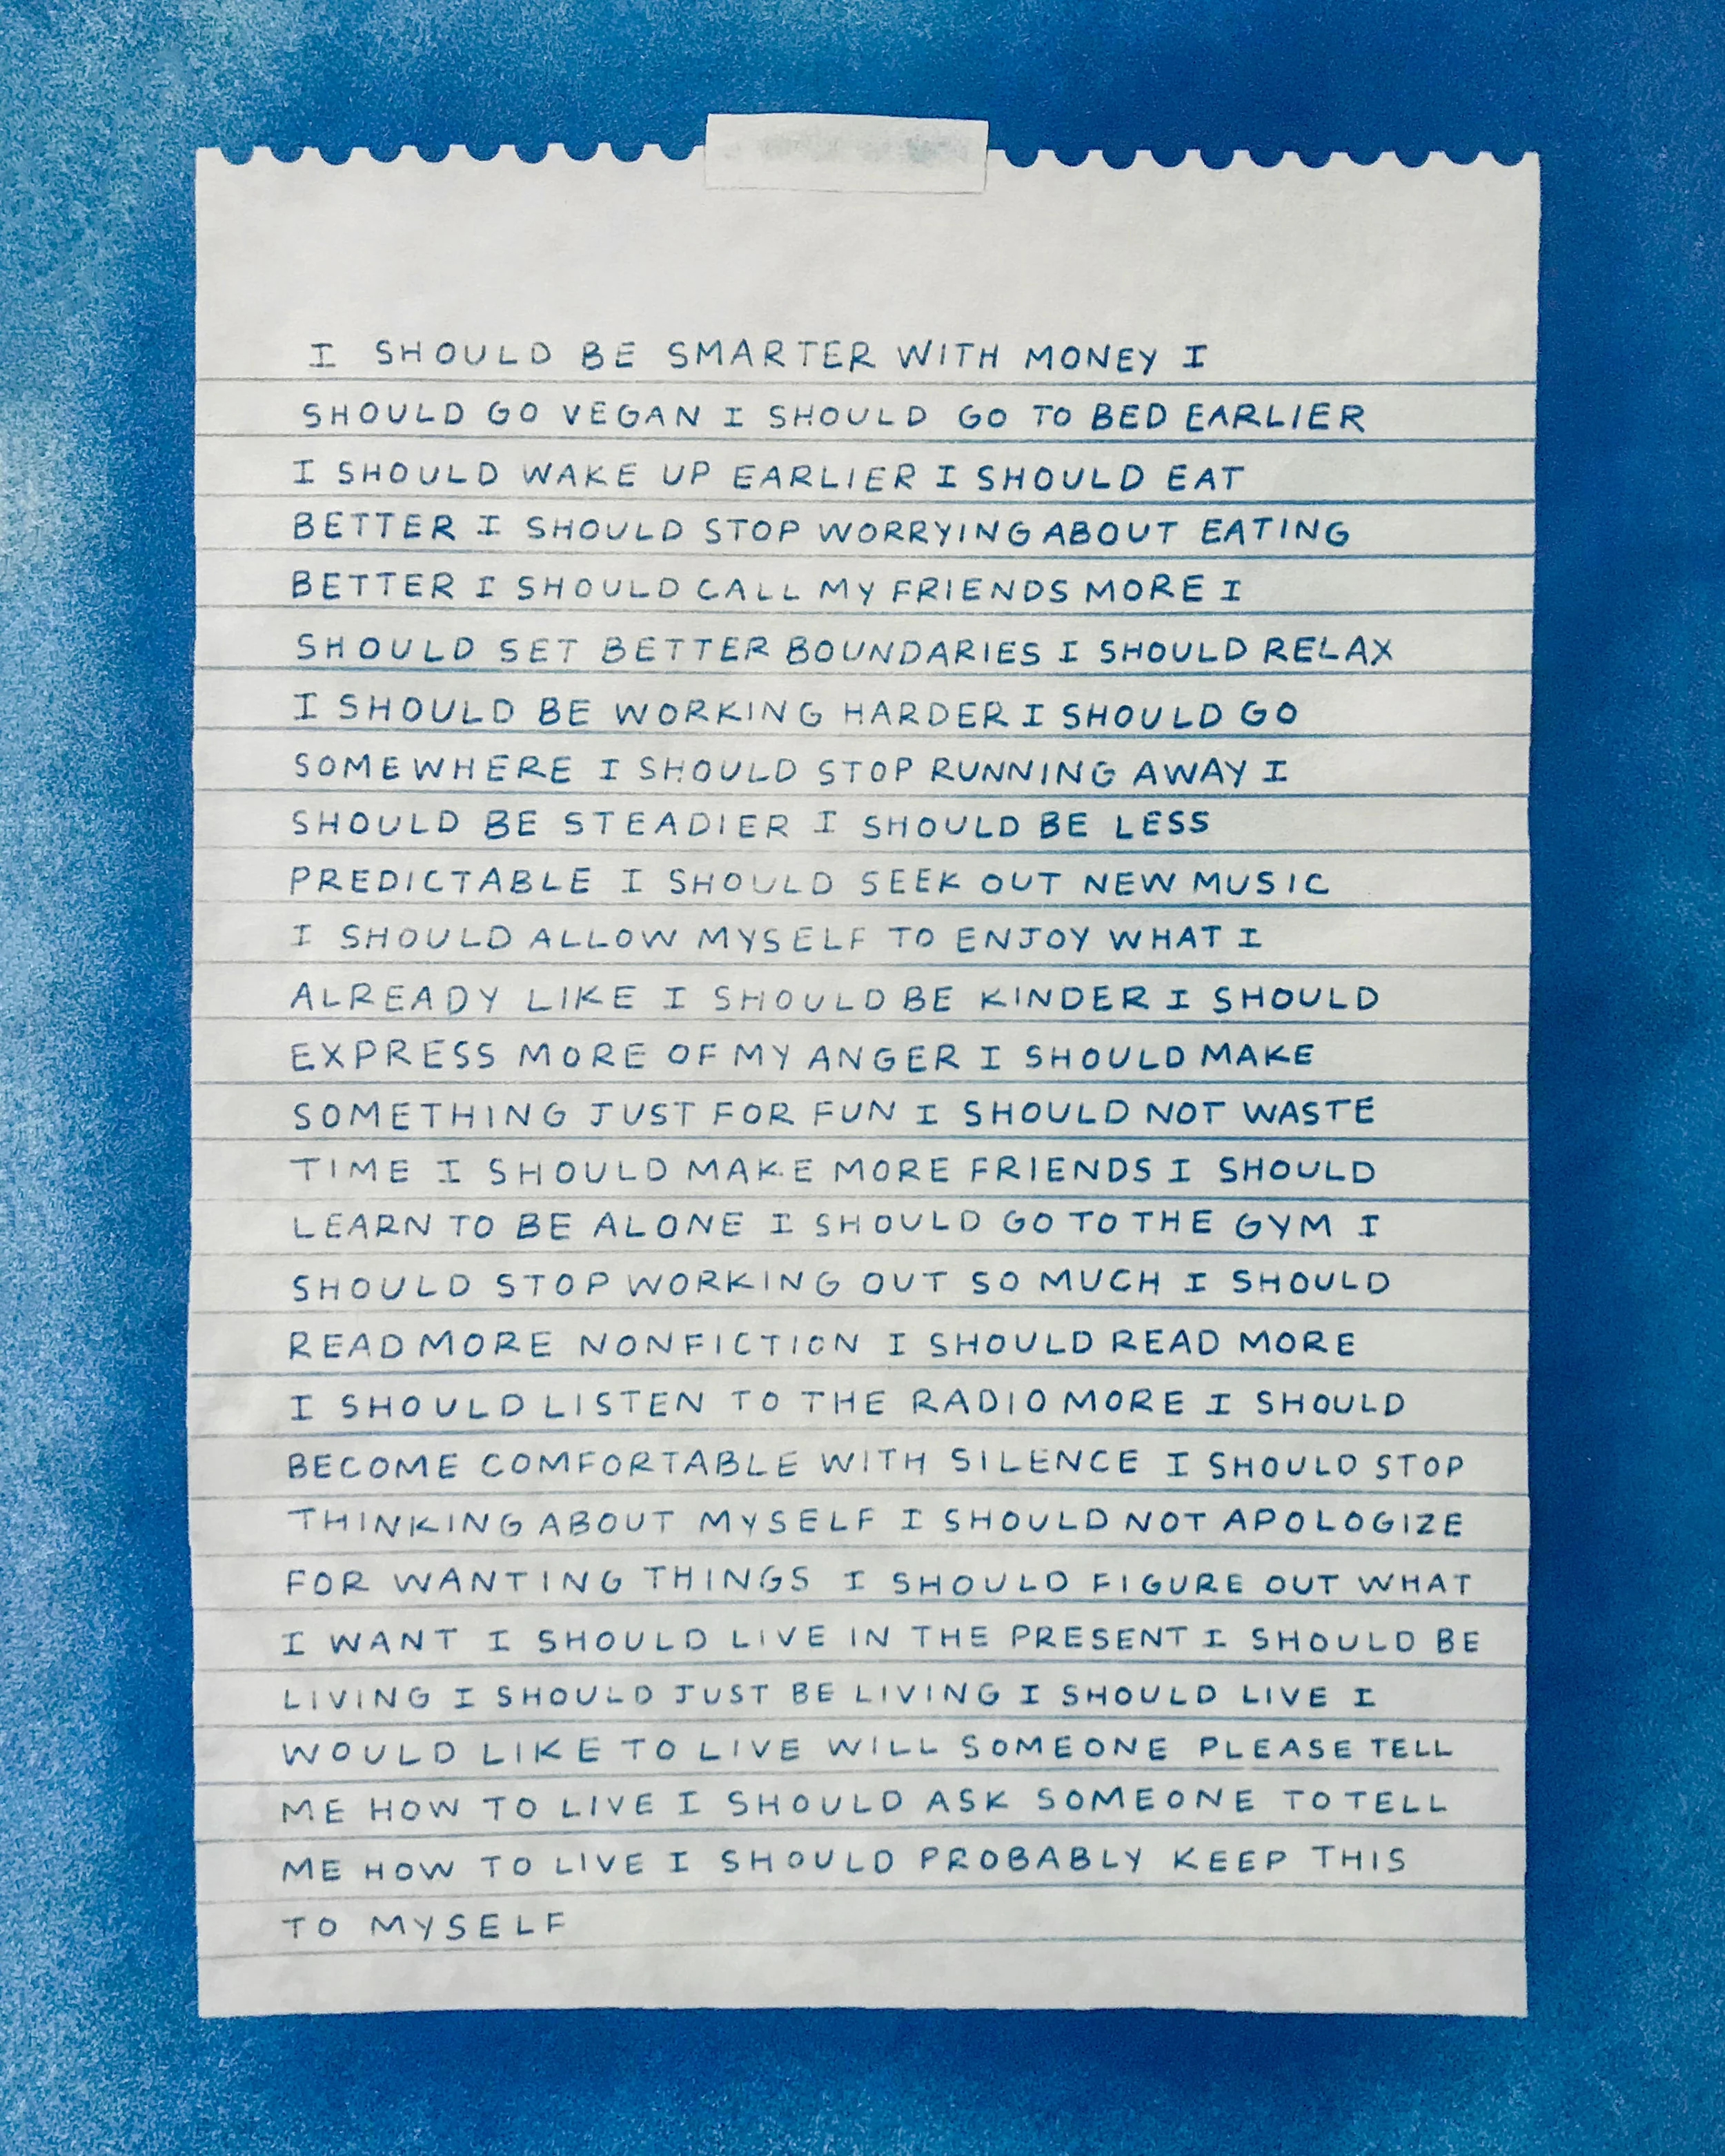 I SHOULD BE SMARTER WITH MONEY I
SHOULD GO VEGAN I SHOULD GO TO BED EARLIER
I SHOULD WAKE UP EARLIER I SHOULD EAT
BETTER I SHOULD STOP WORRYING ABOUT EATING
BETTER I SHOULD CALL MY FRIENDS MORE I
SHOULD SET BETTER BOUNDARIES I SHOULD RELAX
I SHOULD BE WORKING HARDER I SHOULD GO
SOMEWHERE I SHOULD STOP RUNNING AWAY I
SHOULD BE STEADIER I SHOULD BE LESS
PREDICTABLE I SHOULD SEEK OUT NEW MUSIC
I SHOULD ALLOW MYSELF TO ENJOY WHAT I
ALREADY LIKE I SHOULD BE KINDER I SHOULD
EXPRESS MORE OF MY ANGER I SHOULD MAKE
SOMETHING JUST FOR FUN I SHOULD NOT WASTE
TIME I SHOULD MAKE MORE FRIENDS I SHOULD
LEARN TO BE ALONE I SHOULD GO TO THE GYM I
SHOULD STOP WORKING OUT SO MUCH I SHOULD
READ MORE NONFICTION I SHOULD READ MORE
I SHOULD LISTEN TO THE RADIO MORE I SHOULD
BECOME COMFORTABLE WITH SILENCE I SHOULD STOP
THINKING ABOUT MYSELF I SHOULD NOT APOLOGIZE
FOR WANTING THINGS I SHOULD FIGURE OUT WHAT
I WANT I SHOULD LIVE IN THE PRESENT I SHOULD BE
LIVING I SHOULD JUST BE LIVING I SHOULD LIVE I
WOULD LIKE TO LIVE WILL SOMEONE PLEASE TELL
ME HOW TO LIVE I SHOULD ASK SOMEONE TO TELL
ME HOW TO LIVE I SHOULD PROBABLY KEEP THIS
TO MYSELF